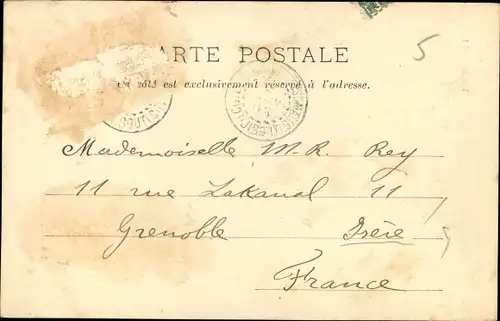 CARTE POSTALE
5
côté est exclusivement réservé à l'adresse.
Mademoiselle M. R. Rey
11 rue Lakanal 11
Grenoble Isère
France